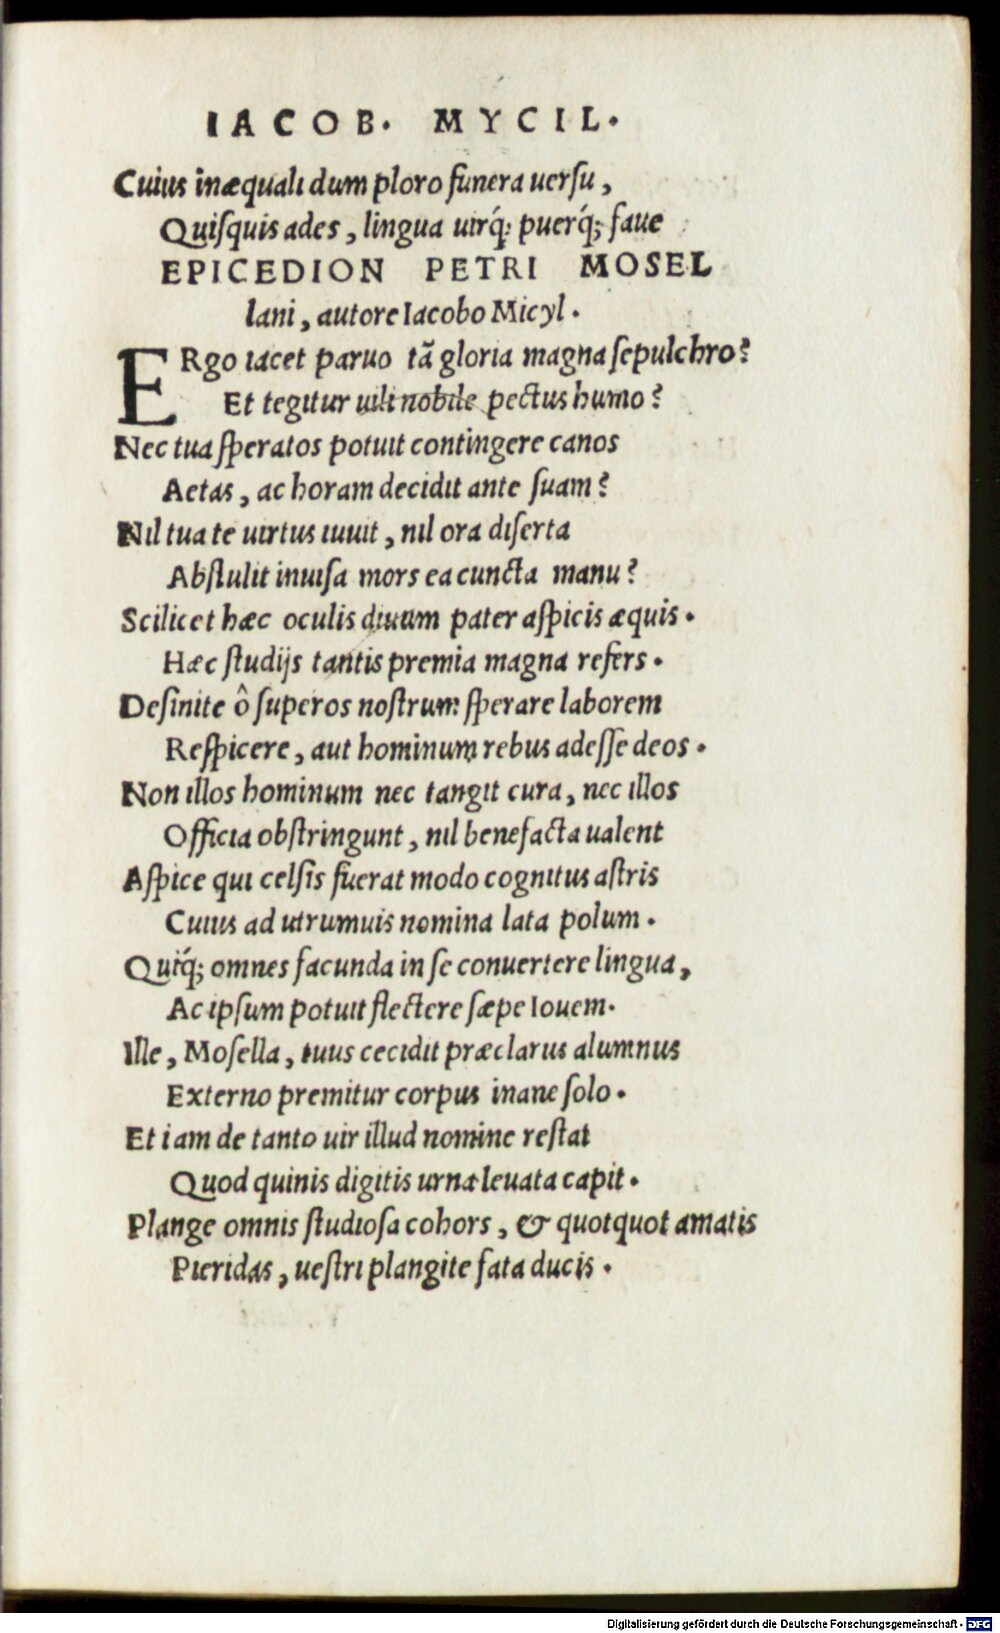 IACOB. MYCIL.
Cuius inæquali dum ploro funera uersu,
Quisquis ades, lingua uirq́; puerq́; faue
EPICEDION PETRI MOSEL
lani, autore Iacobo Micyl.
ERgo iacet paruo tã gloria magna sepulchro?
Et tegitur uili nobile pectus humo?
Nec tua speratos potuit contingere canos
Aetas, ac horam decidit ante suam?
Nil tua te uirtus iuuit, nil ora diserta
Abstulit inuisa mors ea cuncta manu?
Scilicet hæc oculis diuum pater aspicis æquis.
Hæc studijs tantis premia magna refers.
Desinite ô superos nostrum sperare laborem
Respicere, aut hominum rebus adesse deos.
Non illos hominum nec tangit cura, nec illos
Officia obstringunt, nil benefacta ualent
Aspice qui celsis fuerat modo cognitus astris
Cuius ad utrumuis nomina lata polum.
Quiq́; omnes facunda in se conuertere lingua,
Ac ipsum potuit flectere sæpe Iouem.
Ille, Mosella, tuus cecidit præclarus alumnus
Externo premitur corpus inane solo.
Et iam de tanto uir illud nomine restat
Quod quinis digitis urna leuata capit.
Plange omnis studiosa cohors, & quotquot amatis
Pieridas, uestri plangite fata ducis.
Digitalisierung gefördert durch die Deutsche Forschungsgemeinschaft - DFG